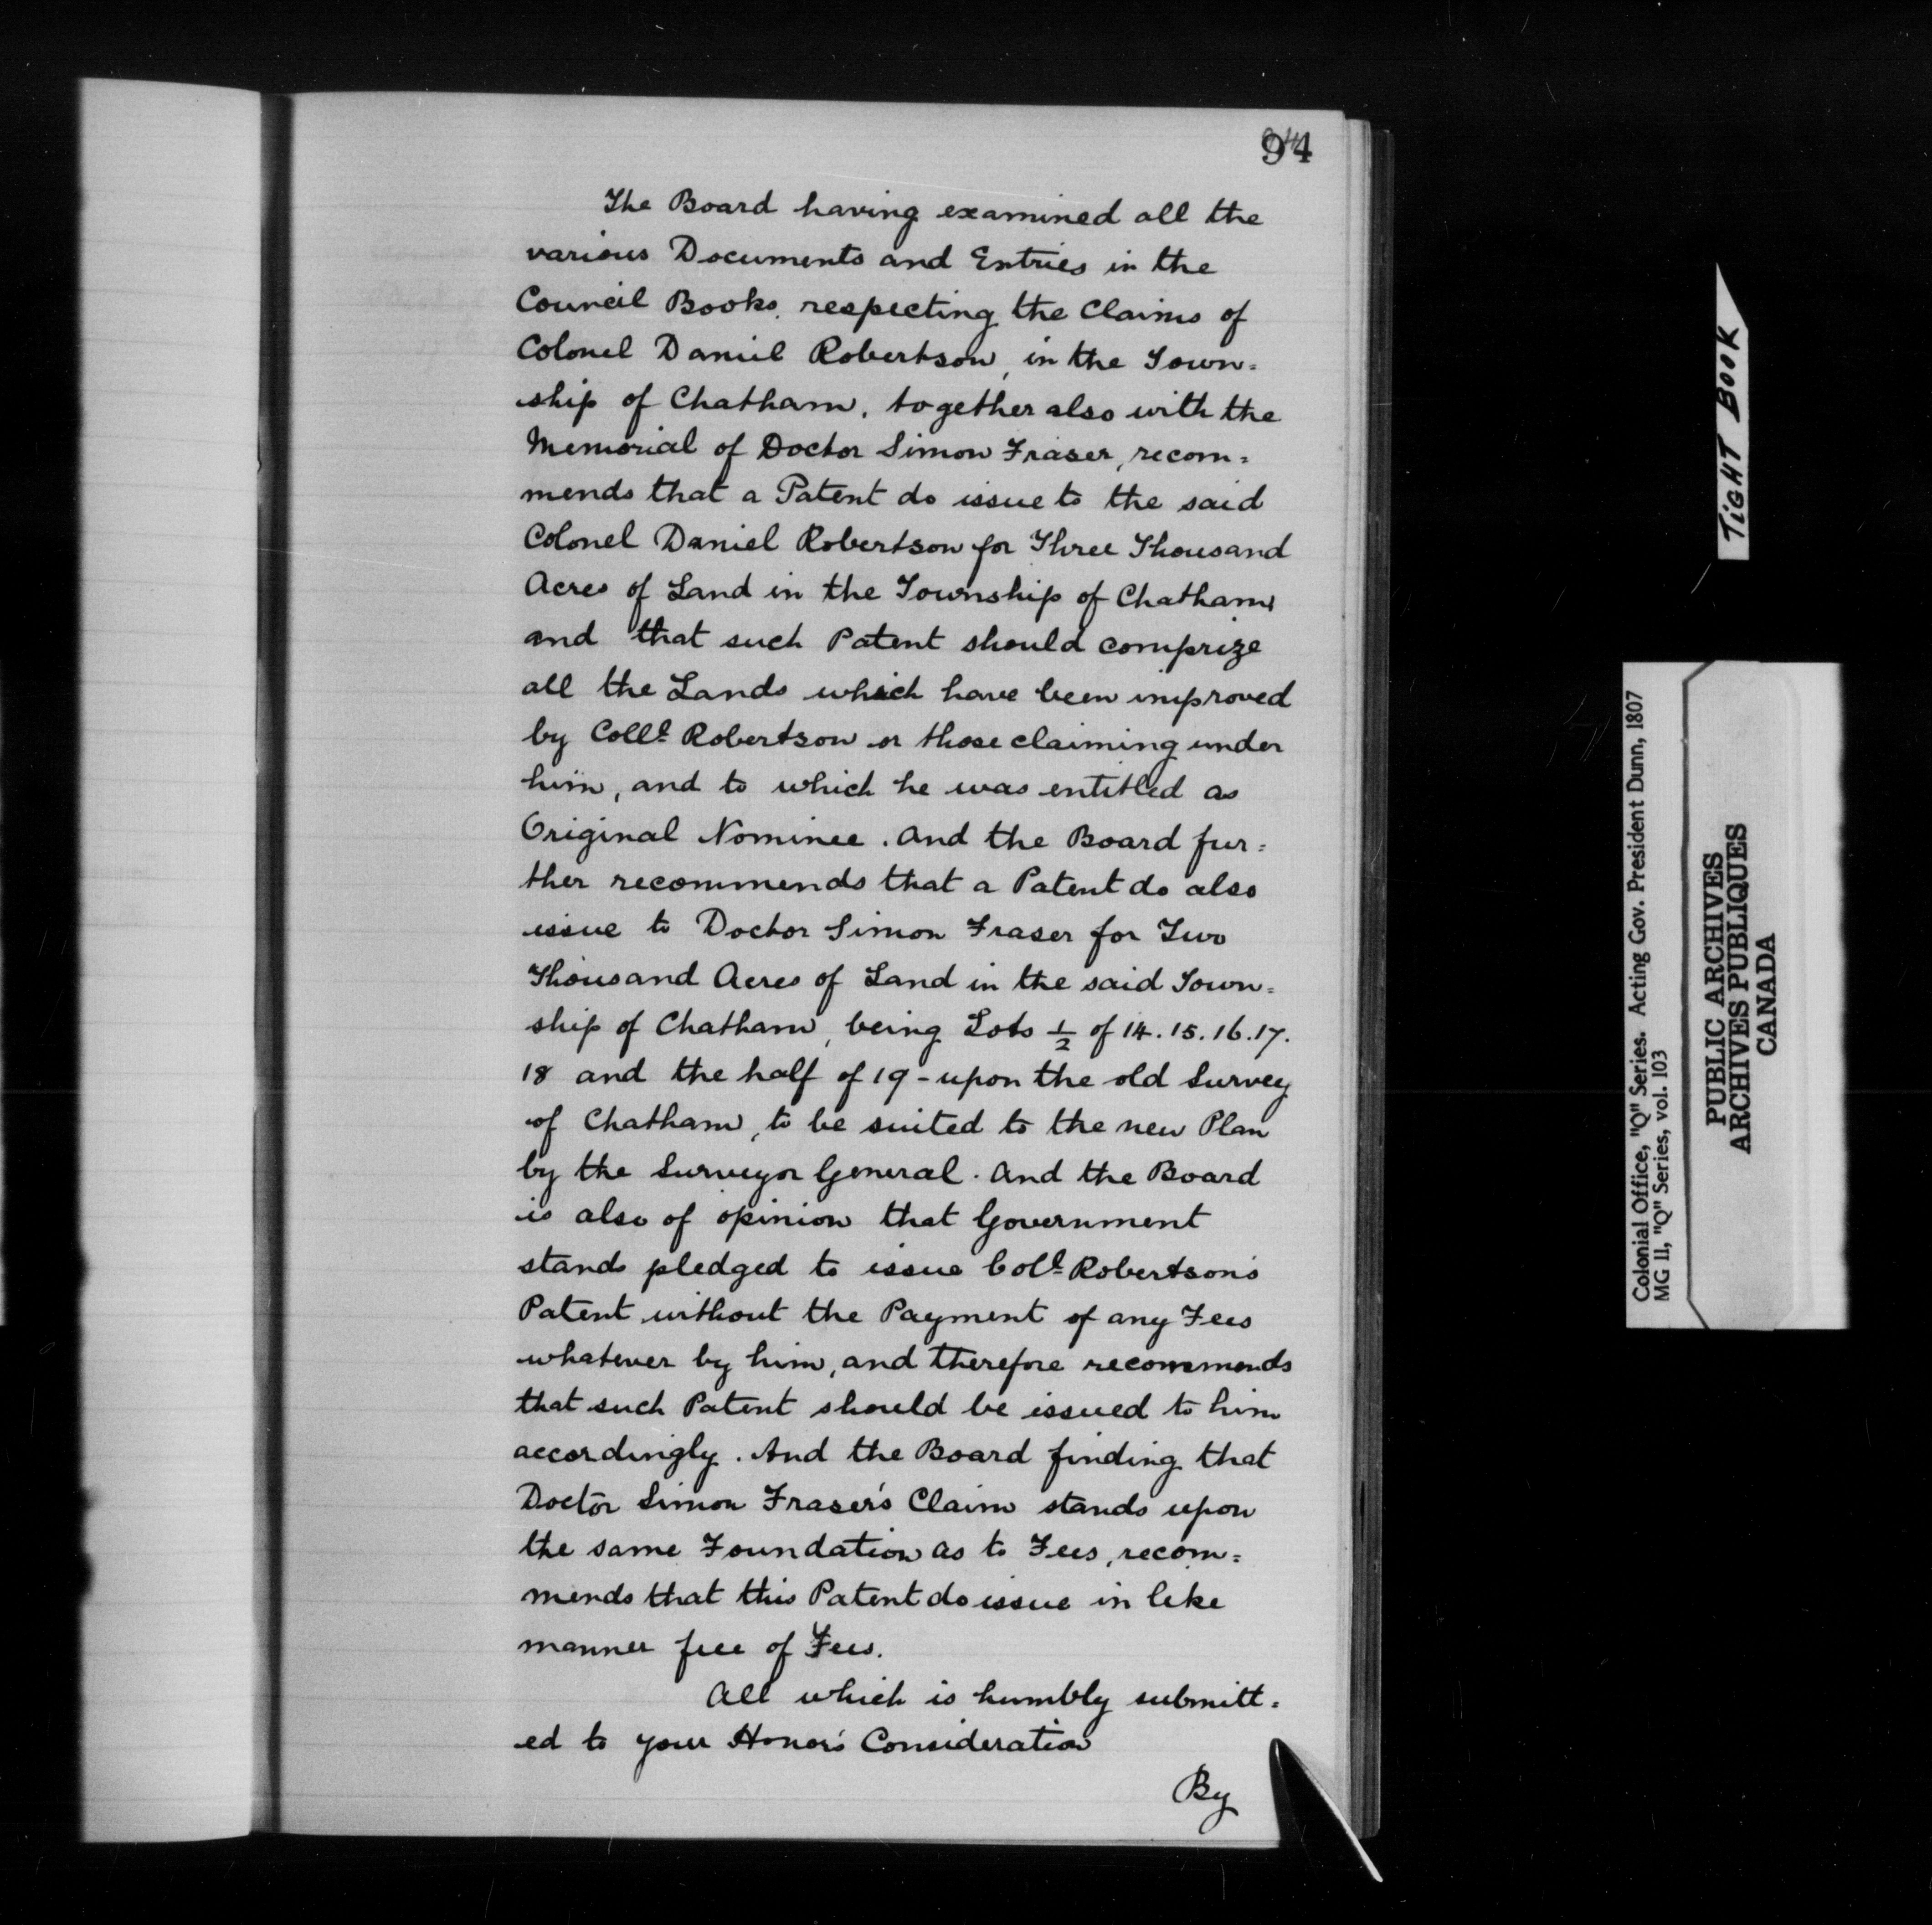 94
The Board having examined all the
various Documents and Entries in the
Council Books, respecting the Claims of
Colonel Daniel Robertson, in the Town=
ship of Chatham, together also with the
Memorial of Doctor Simon Fraser, recom=
mends that a Patent do issue to the said
Colonel Daniel Robertson for Three Thousand
Acres of Land in the Township of Chatham
and that such Patent should comprize
all the Lands which have been improved
by Coll. Robertson or those claiming under
him, and to which he was entitled as
Original Nominee. And the Board fur=
ther recommends that a Patent do also
issue to Doctor Simon Fraser for Two
Thousand Acres of Land in the said Town=
ship of Chatham, being Lots 1/2 of 14. 15. 16. 17.
18 and the half of 19 - upon the old Survey
of Chatham, to be suited to the new Plan
by the Surveyor General. And the Board
is also of opinion that Government
stands pledged to issue Coll. Robertson's
Patent without the Payment of any Fees
whatever by him, and therefore recommends
that such Patent should be issued to him
accordingly. And the Board finding that
Doctor Simon Fraser's Claim stands upon
the same Foundation as to Fees, recom=
mends that this Patent do issue in like
manner free of Fees.
All which is humbly submitt=
ed to your Honor's Consideration
By
TIGHT BOOK
Colonial Office, "Q" Series. Acting Gov. President Dunn, 1807
MG 11, "Q" Series, vol. 103
PUBLIC ARCHIVES
ARCHIVES PUBLIQUES
CANADA